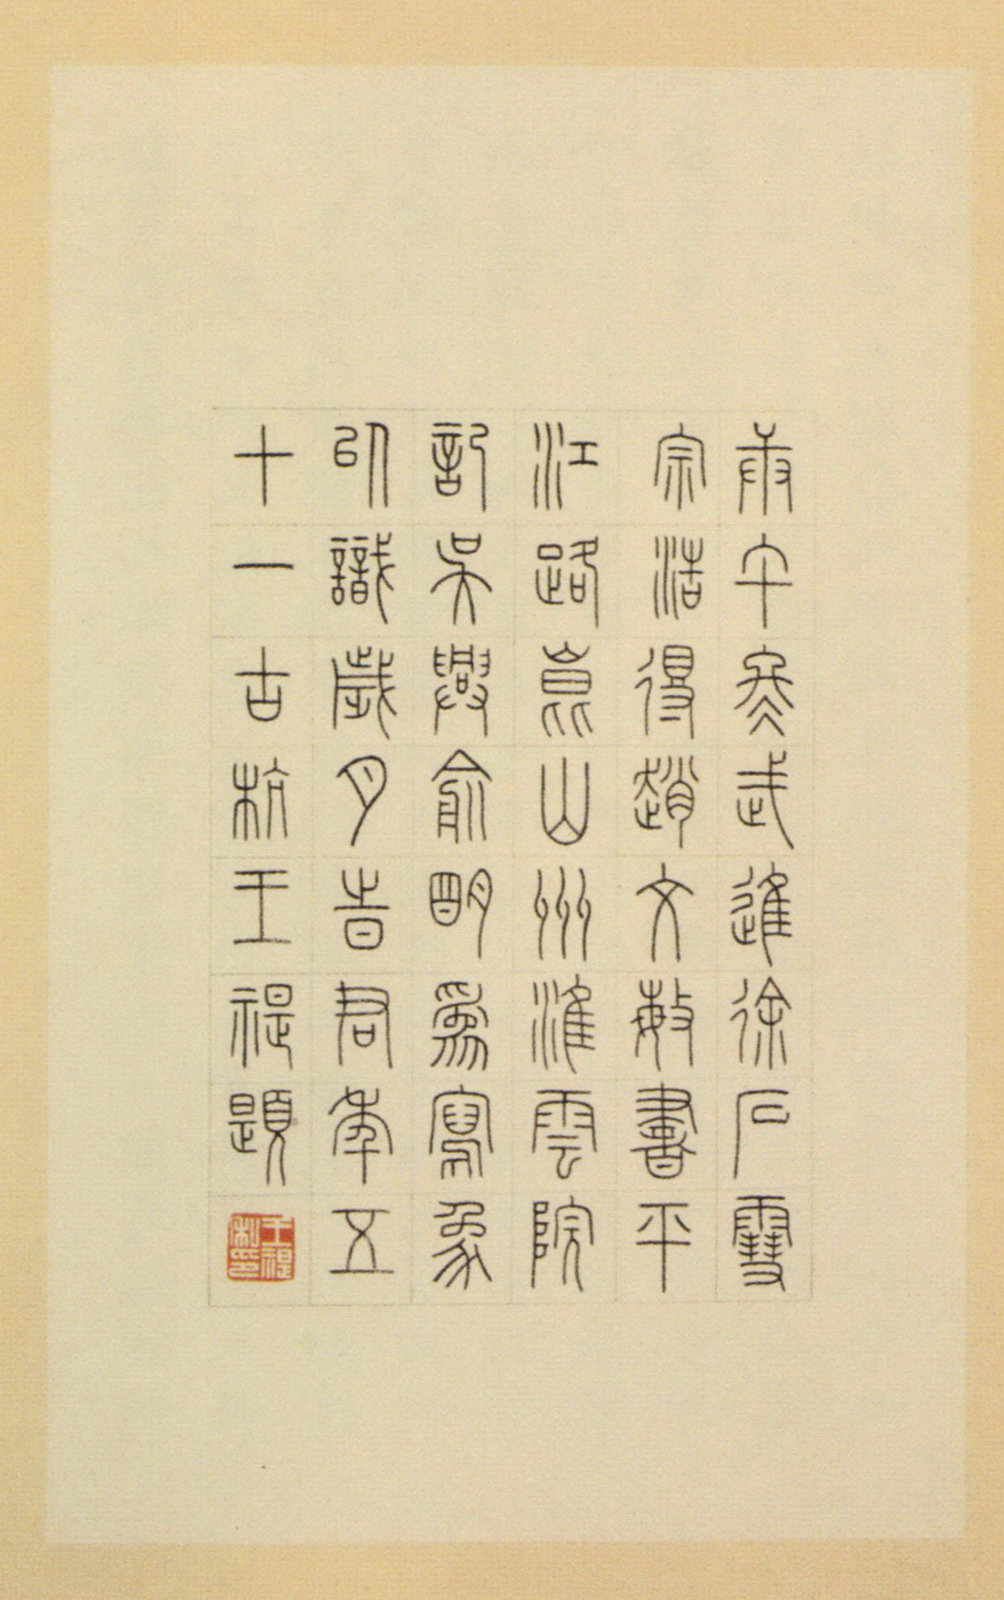 庚午冬武進徐石雪
宗浩得趙文敏書平
江路昆山州淮雲院
記吳興俞明爲寫象
以識歲月旹君年五
十一古杭王禔題
王禔私印